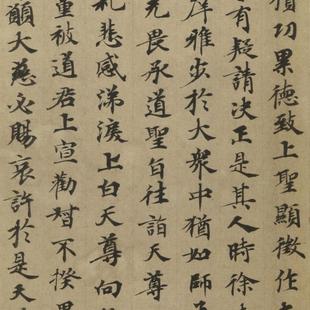 積功累德致上聖顯徵作
有疑請決正是其人時徐
庠雅步於大衆中猶如師
无畏承道聖旨往詣天尊
礼悲感涕淚上白天尊向
重被道君上宣勸對不揆
願大慈必賜哀許於是天